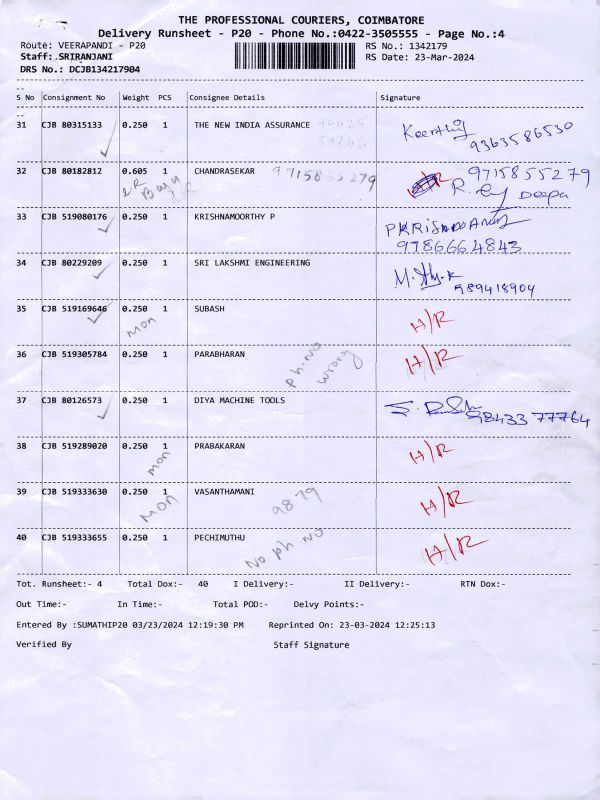 THE PROFESSIONAL COURIERS, COIMBATORE
Delivery Runsheet - P20 - Phone No.:0422-3505555 - Page No.:4
Route: VEERAPANDI - P20 RS No.: 1342179
Staff: SRIRANJANI RS Date: 23-Mar-2024
DRS No.: DCJB134217904
S No Consignment No Weight PCS Consignee Details Signature
31 CJB 80315133 0.250 1 THE NEW INDIA ASSURANCE Keerthij
9363586530
32 CJB 80182812 0.605 1 CHANDRASEKAR 9715855279 9715855279
Deepa
33 CJB 519080176 0.250 1 KRISHNAMOORTHY P
9786664843
34 CJB 80229209 0.250 1 SRI LAKSHMI ENGINEERING
989418904
35 CJB 519169646 0.250 1 SUBASH H/R
mon
36 CJB 519305784 0.250 1 PARABHARAN ph.no wrong H/R
37 CJB 80126573 0.250 1 DIYA MACHINE TOOLS 98433 77764
38 CJB 519289020 0.250 1 PRABAKARAN H/R
mon
39 CJB 519333630 0.250 1 VASANTHAMANI 9879 H/R
mon
40 CJB 519333655 0.250 1 PECHIMUTHU H/R
No ph no
Tot. Runsheet:- 4 Total Dox:- 40 I Delivery:- II Delivery:- RTN Dox:-
Out Time:- In Time:- Total POD:- Delvy Points:-
Entered By :SUMATHIP20 03/23/2024 12:19:30 PM Reprinted On: 23-03-2024 12:25:13
Verified By Staff Signature